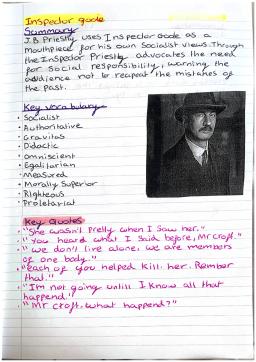 Inspector goole
Summary
J.B Priestly uses Inspector Goole as a
mouthpiece for his own Socialist views. Through
the Inspector Priestly advocates the need
for social responsibility, warning the
audience not to reapeat the mistakes of
the past.
Key vocabulary
• Socialist
• Authoritative
• Gravitas
• Didactic
• omniscient
• Egalitarian
• Measured
• Morally Superior
• Righteous
• Proletariat
Key Quotes
• "She wasn't Pretty when I saw her."
• "You heard what I said before, Mr Croft."
• "we don't live alone. we are members
of one body."
• "each of you helped kill her. Rember
that."
• "I'm not going untill I know all that
happend."
• "Mr croft. what happend?"